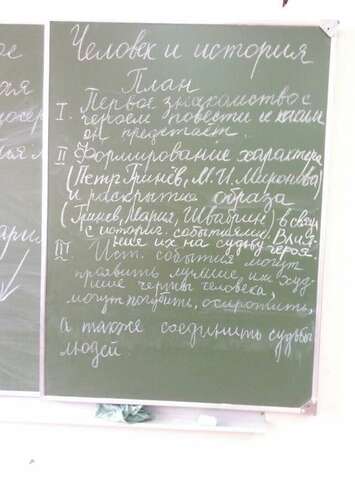 Человек и история
План
I. Первое знакомство с
героем повести и каким
он предстаёт.
II Формирование характера
(Петр Гринёв, М. И. Миронова)
и раскрытия образа
(Гринев, Мария, Швабрин) в связи
с историч. событиями. Влия-
ния их на судьбу героя.
III. Ист. события могут
проявить лучшие, или худ-
шие черты человека,
могут погубить, осиротить,
а также соединить судьбы
людей.